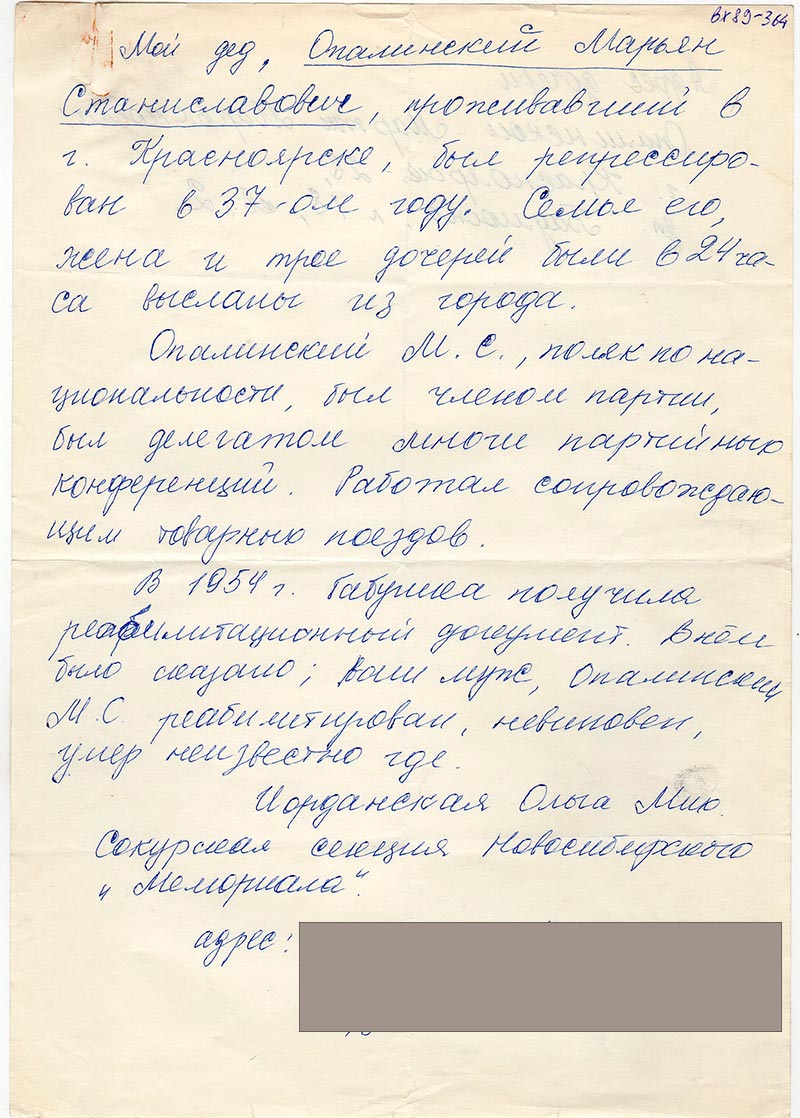 вх89-364
Мой дед, Опалинский Марьян
Станиславович, проживавший в
г. Красноярске, был репрессиро-
ван в 37-ом году. Семья его,
жена и трое дочерей были в 24 ча-
са высланы из города.
Опалинский М. С., поляк по на-
циональности, был членом партии,
был делегатом многи партийных
конференций. Работал сопровождаю-
щим товарных поездов.
В 1954 г. бабушка получила
реабилитационный документ. В нём
было сказано; Ваш муж, Опалинский
М.С. реабилитирован, невиновен,
умер неизвестно где.
Иорданская Ольга Мих.
Сокурская секция Новосибирского
„Мемориала".
адрес: